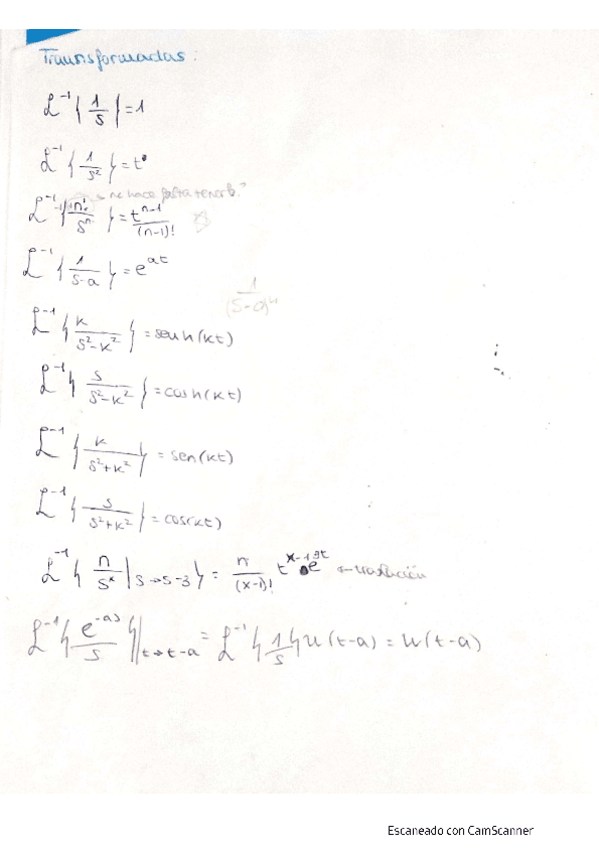 Transformadas:
ℒ⁻¹{1/s}=1
ℒ⁻¹{1/s²}=t
no hace falta tenerlo
ℒ⁻¹{n!/sⁿ}=tⁿ⁻¹/(n-1)!
ℒ⁻¹{1/s-a}=eᵃᵗ
1/(s-a)ⁿ
ℒ⁻¹{k/s²-k²}=senh(kt)
ℒ⁻¹{s/s²-k²}=cosh(kt)
ℒ⁻¹{k/s²+k²}=sen(kt)
ℒ⁻¹{s/s²+k²}=cos(kt)
ℒ⁻¹{n/sˣ|s→s-3}= n/(x-1)! tˣ⁻¹·e³ᵗ ←traslación
ℒ⁻¹{e⁻ᵃˢ/s}|t→t-a = ℒ⁻¹{1/s}u(t-a)=u(t-a)
Escaneado con CamScanner